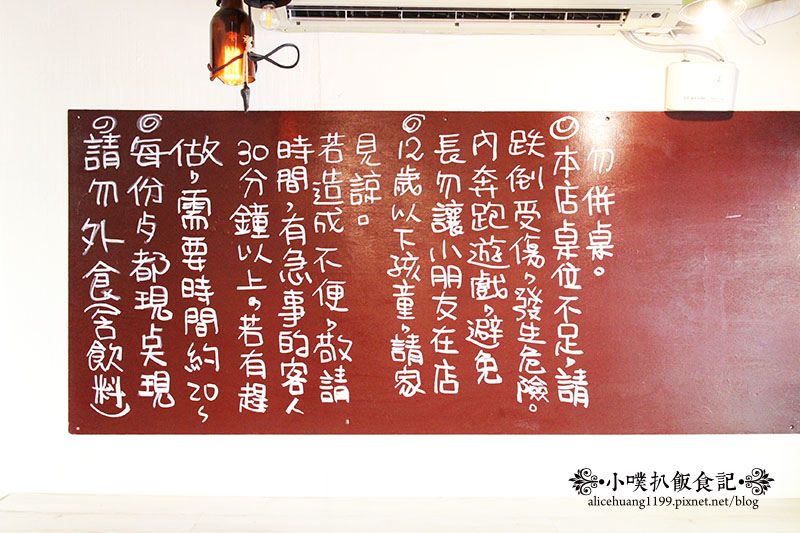 ◎請勿外食(含飲料)
◎每份歺都現点現
做,需要時間約20~
30分鐘以上。若有趕
時間,有急事的客人
若造成不便,敬請
見諒。
◎12歲以下孩童,請家
長勿讓小朋友在店
內奔跑遊戲,避免
跌倒受傷,發生危險。
◎本店桌位不足,請
勿併桌。
小噗扒飯食記
alicehuang1199.pixnet.net/blog